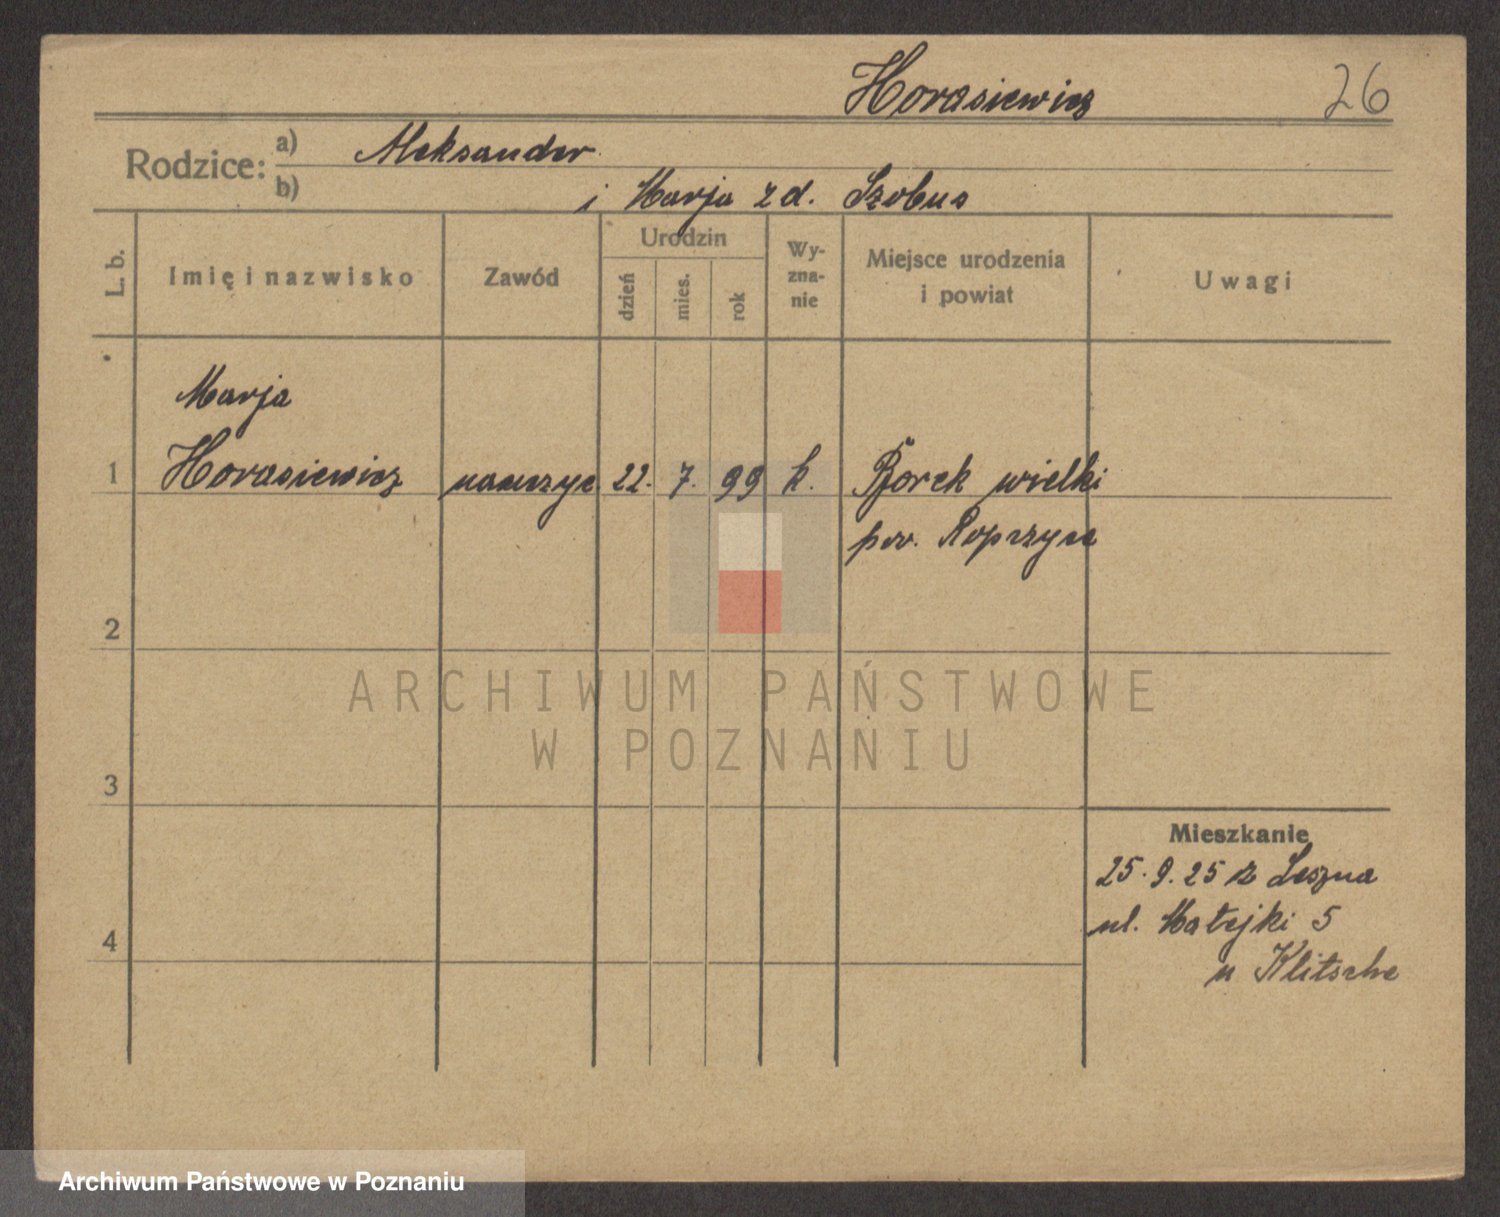 Horasiewicz 26
Rodzice: a) Aleksander
b) i Marja z d. Szobus
L. b. Imię i nazwisko Zawód Urodzin dzień mies. rok Wy-
zna-
nie Miejsce urodzenia
i powiat Uwagi
Marja
1 Horasiewicz nauczyc 22. 7. 99 k. Borek wielki
pow. Ropczyce
2
ARCHIWUM PAŃSTWOWE
W POZNANIU
3
Mieszkanie
25. 9. 25 z Leszna
4 ul. Matejki 5
u Klitsche
Archiwum Państwowe w Poznaniu